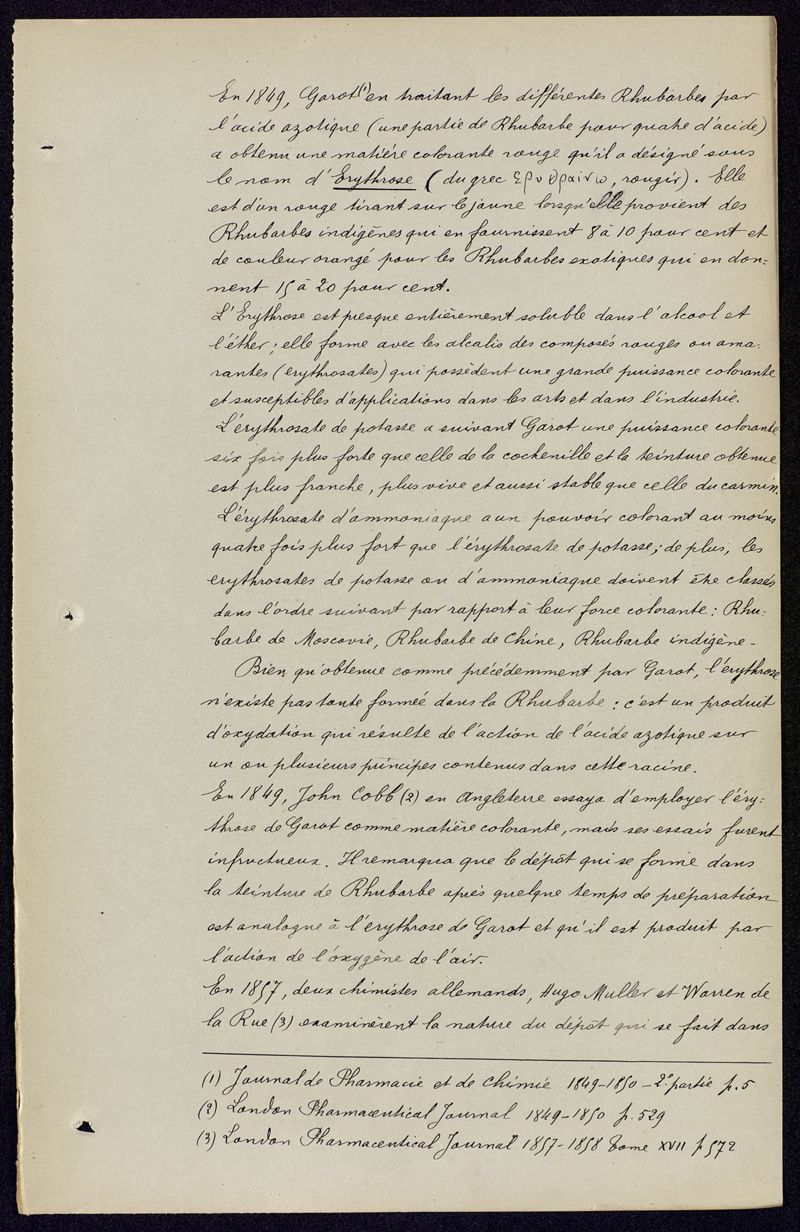 En 1849, Garot (1) en traitant les différentes Rhubarbes par
l'acide azotique (une partie de Rhubarbe pour quatre d'acide)
a obtenu une matière colorante rouge qu'il a désigné sous
le nom d'Erythrose (du grec ερυθραινω, rougir). Elle
est d'un rouge tirant sur le jaune lorsqu'elle provient des
Rhubarbes indigènes qui en fournissent 8 à 10 pour cent et
de couleur orangé pour les Rhubarbes exotiques qui en don=
nent 15 à 20 pour cent.
L'Erythrose est presque entièrement soluble dans l'alcool et
l'éther; elle forme avec les alcalis des composés rouges ou ama-
rantes (erythrosates) qui possèdent une grande puissance colorante
et susceptibles d'applications dans les arts et dans l'industrie.
L'érythrosate de potasse a suivant Garot une puissance colorante
six fois plus forte que celle de la cochenille et la teinture obtenue
est plus franche, plus vive et aussi stable que celle du carmin.
L'érythrosate d'ammoniaque a un pouvoir colorant au moins
quatre fois plus fort que l'érythrosate de potasse; de plus, les
erythrosates de potasse ou d'ammoniaque doivent être classés
dans l'ordre suivant par rapport à leur force colorante: Rhu-
barbe de Moscovie, Rhubarbe de Chine, Rhubarbe indigène -
Bien qu'obtenue comme précédemment par Garot, l'érythrose
n'existe pas toute formée dans la Rhubarbe: c'est un produit
d'oxydation qui résulte de l'action de l'acide azotique sur
un ou plusieurs principes contenus dans cette racine.
En 1849, John Cobb (2) en Angleterre essaya d'employer l'éry=
throse de Garot comme matière colorante, mais ses essais furent
infructueux. Il remarqua que le dépôt qui se forme dans
la teinture de Rhubarbe après quelque temps de préparation
est analogue à l'erythrose de Garot et qu'il est produit par
l'action de l'oxygène de l'air.
En 1857, deux chimistes allemands, Hugo Muller et Warren de
la Rue (3) examinèrent la nature du dépôt qui se fait dans
(1) Journal de Pharmacie et de Chimie 1849-1850 - 2e partie p. 5
(2) London Pharmaceutical Journal 1849-1850 p. 529
(3) London Pharmaceutical Journal 1857-1858 Tome XVII p 572